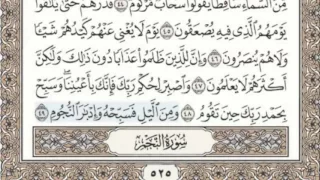 مِّنَ ٱلسَّمَآءِ سَاقِطًا يَقُولُوا۟ سَحَابٌ مَّرْكُومٌ ٤٤ فَذَرْهُمْ حَتَّىٰ يُلَٰقُوا۟
يَوْمَهُمُ ٱلَّذِى فِيهِ يُصْعَقُونَ ٤٥ يَوْمَ لَا يُغْنِى عَنْهُمْ كَيْدُهُمْ شَيْـًٔا
وَلَا هُمْ يُنصَرُونَ ٤٦ وَإِنَّ لِلَّذِينَ ظَلَمُوا۟ عَذَابًا دُونَ ذَٰلِكَ وَلَٰكِنَّ
أَكْثَرَهُمْ لَا يَعْلَمُونَ ٤٧ وَٱصْبِرْ لِحُكْمِ رَبِّكَ فَإِنَّكَ بِأَعْيُنِنَا وَسَبِّحْ
بِحَمْدِ رَبِّكَ حِينَ تَقُومُ ٤٨ وَمِنَ ٱلَّيْلِ فَسَبِّحْهُ وَإِدْبَٰرَ ٱلنُّجُومِ ٤٩
سُورَةُ ٱلنَّجْمِ
٥٢٥